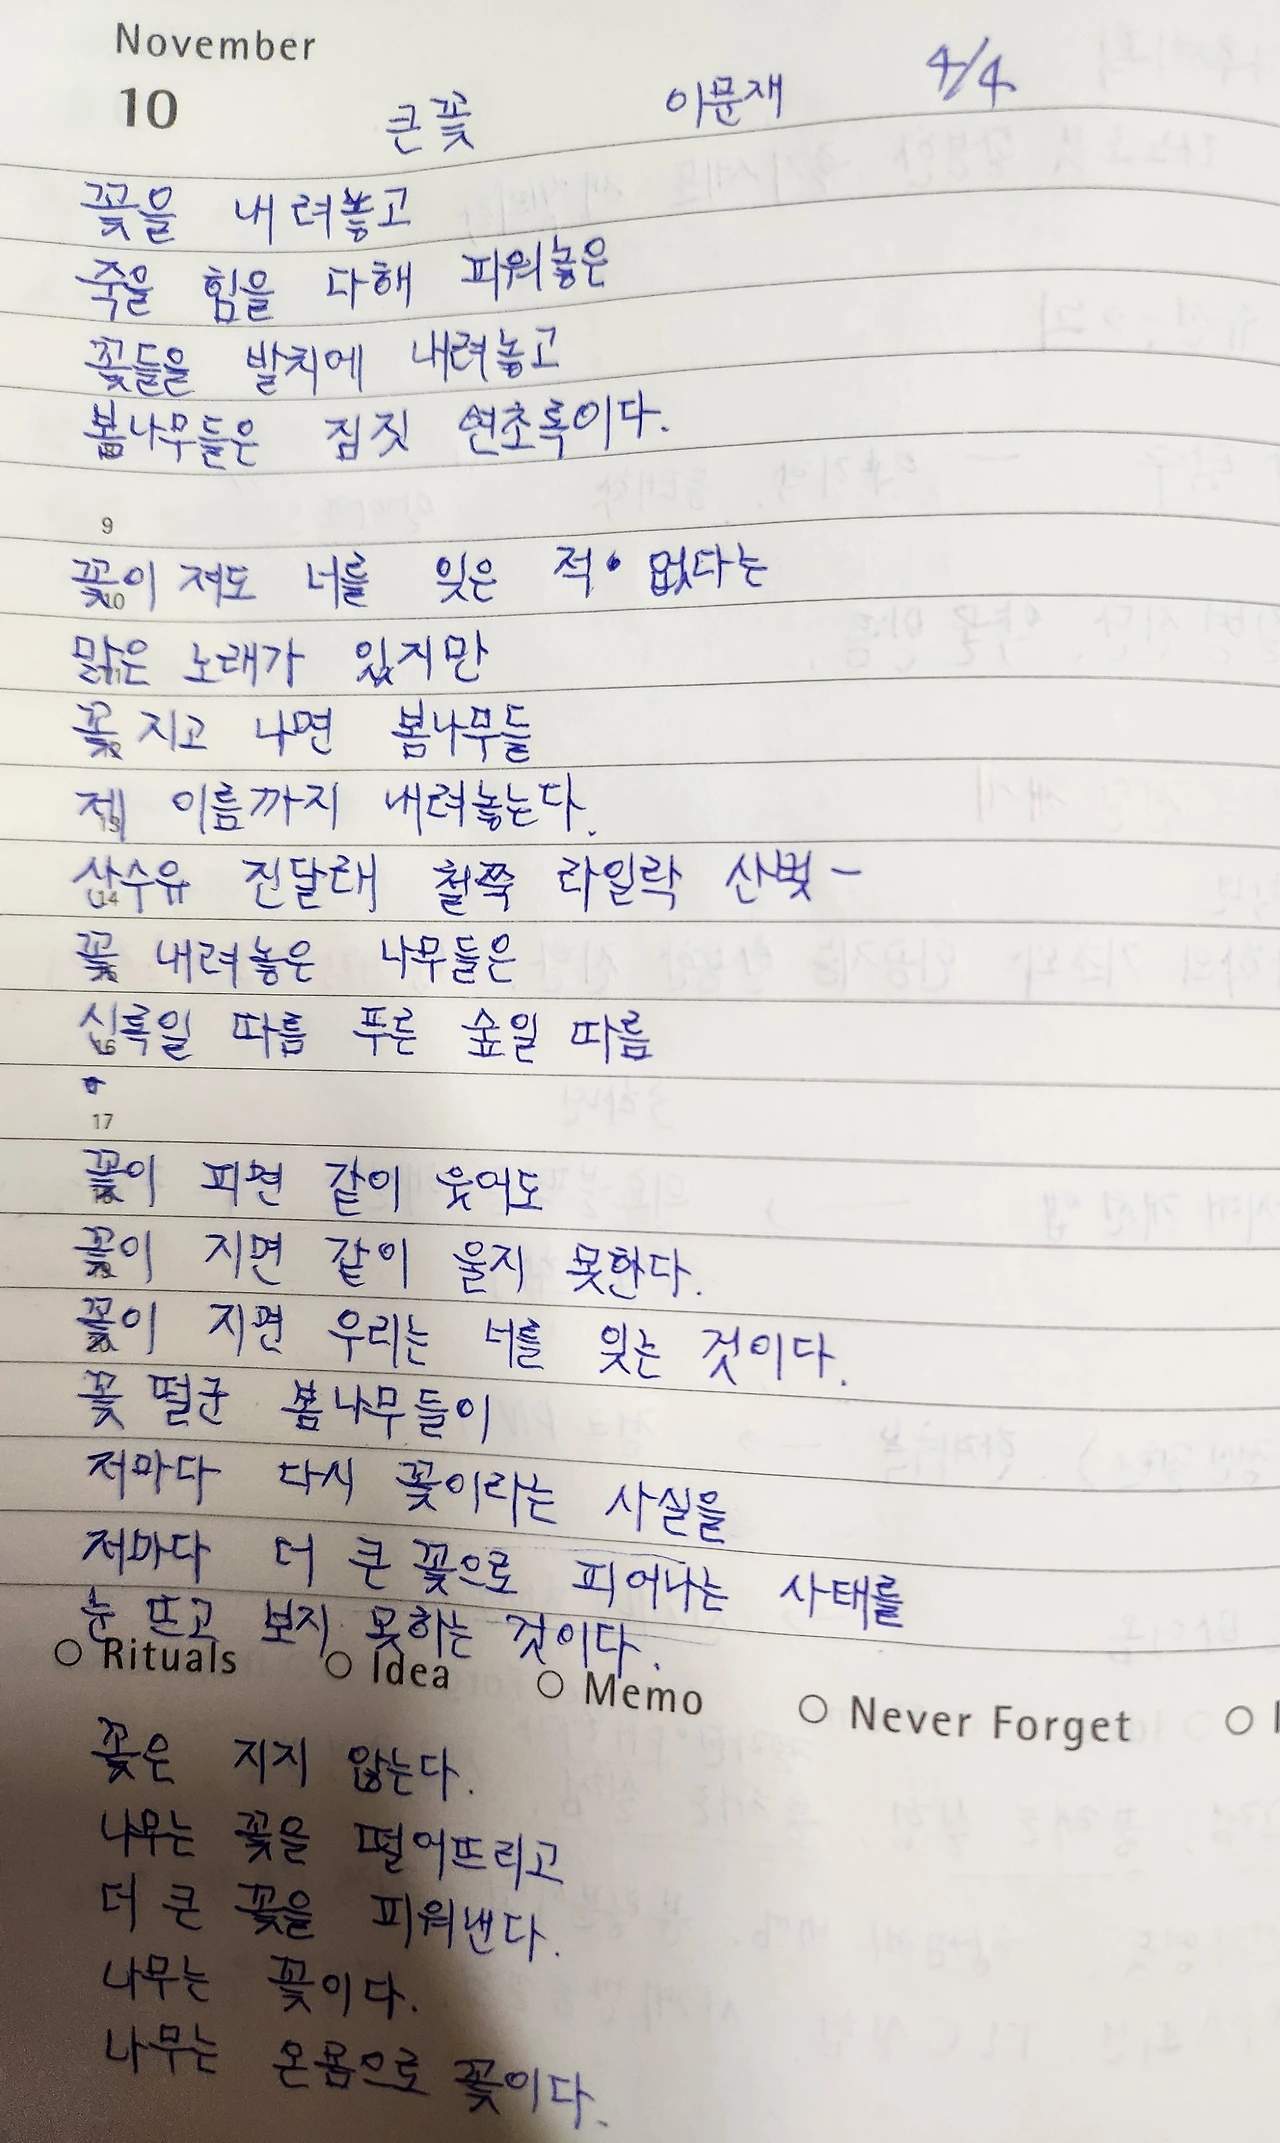 November
10 큰 꽃 이문재 4/4
꽃을 내려놓고
죽을 힘을 다해 피워놓은
꽃들을 발치에 내려놓고
봄나무들은 짐짓 연초록이다.
9
꽃이 져도 너를 잊은 적 없다는
10
맑은 노래가 있지만
꽃 지고 나면 봄나무들
제 이름까지 내려놓는다.
산수유 진달래 철쭉 라일락 산벚 -
14
꽃 내려놓은 나무들은
신록일 따름 푸른 숲일 따름
16
17
꽃이 피면 같이 웃어도
꽃이 지면 같이 울지 못한다.
꽃이 지면 우리는 너를 잊는 것이다.
꽃 떨군 봄나무들이
저마다 다시 꽃이라는 사실을
저마다 더 큰 꽃으로 피어나는 사태를
눈 뜨고 보지 못하는 것이다.
Rituals Idea Memo Never Forget
꽃은 지지 않는다.
나무는 꽃을 떨어뜨리고
더 큰 꽃을 피워낸다.
나무는 꽃이다.
나무는 온몸으로 꽃이다.